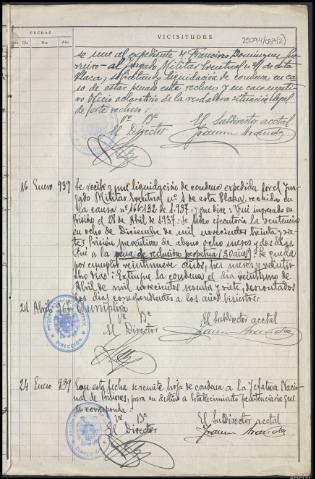 25074/38(2)
FECHAS
VICISITUDES
Día
Mes
Año
se une al expediente de Francisco Dominguez
al Juzgado Militar Eventual nº 1 de esta
Plaza, solicitando liquidación de condena en ca
so de estar penado este recluso y en caso
oficio aclaratorio de la verdadera situación legal
de este recluso:
Vº Bº
El Subdirector acctal
El Director
16 Enero 939
Se recibe y une liquidación de condena expedida por el Juz
gado Militar Eventual nº 1 de esta Plaza, recaída en
la causa nº 166.132 de 1.937, y que dice:
prisión el 28 de Abril de 1.937. Se hizo ejecutoria la sentencia
en ocho de Diciembre de mil novecientos treinta y
siete. Prisión preventiva de abono ocho meses y dos días
Pena a la pena de reclusión perpetua (30 años). Le queda
por cumplir veintinueve años, tres meses y veintio
cho días: Extingue la condena el día veintiuno de
Abril de mil novecientos sesenta y siete, descontados
los días correspondientes a los años bisiestos.
21 Abril 967 Cumplirá
Vº Bº
El Subdirector acctal
El Director
24 Enero 939
Con esta fecha se remite hoja de condena a la Jefatura Nacio
nal de Prisiones, para su destino a establecimiento penitenciario que
le corresponda:
Vº Bº
El Subdirector acctal
El Director